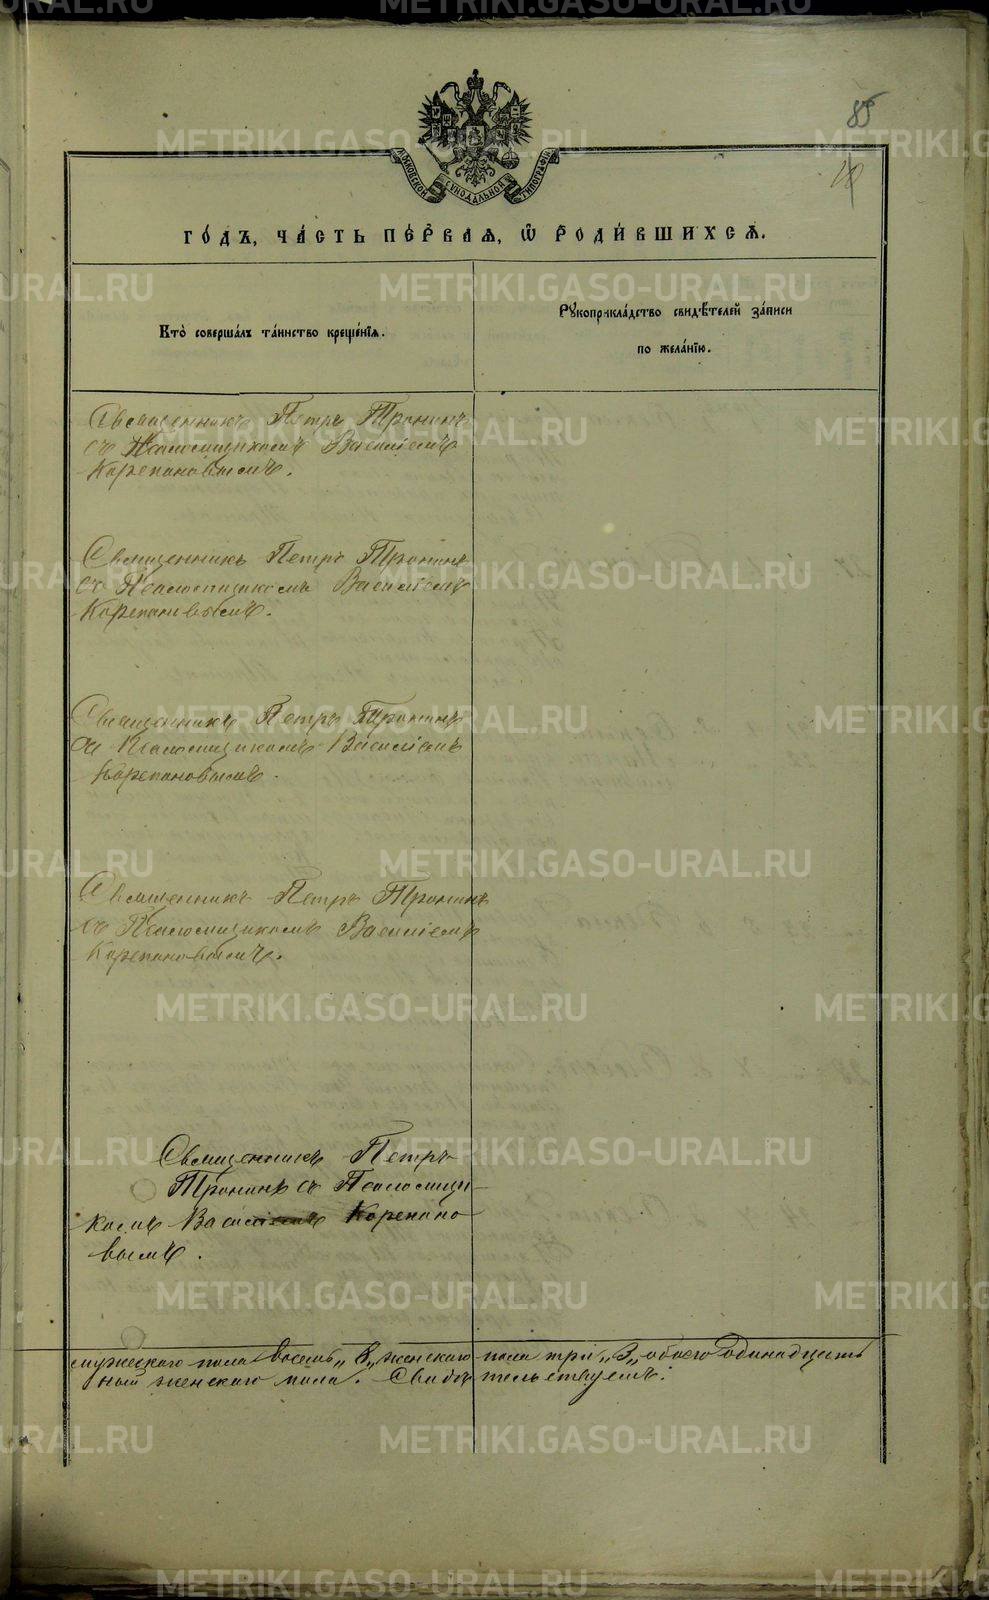 85
МОСКОВСКОЙ СѴНОДАЛЬНОЙ ТИПОГРАФІИ
го́дъ, ча́сть пе́рваѧ, ѡ҆ роди́вшихсѧ.
Кто̀ соверша́лъ та́инство креще́нїѧ.
Рꙋкоприкла́дство свидѣ́телей за́писи
по жела́нїю.
Священникъ Петръ Тронинъ
съ Псаломщикомъ Василіемъ
Корепановымъ.
Священникъ Петръ Тронинъ
съ Псаломщикомъ Василіемъ
Корепановымъ.
Священникъ Петръ Тронинъ
съ Псаломщикомъ Василіемъ
Корепановымъ.
Священникъ Петръ Тронинъ
съ Псаломщикомъ Василіемъ
Корепановымъ.
Священникъ Петръ
Тронинъ съ Псаломщи-
комъ Василіемъ Корепано
вымъ.
мужескаго пола восемь „8„ женскаго пола три „3„ обоего одинадцать
ный женскаго пола. Свидѣтельствуемъ.
METRIKI.GASO-URAL.RU